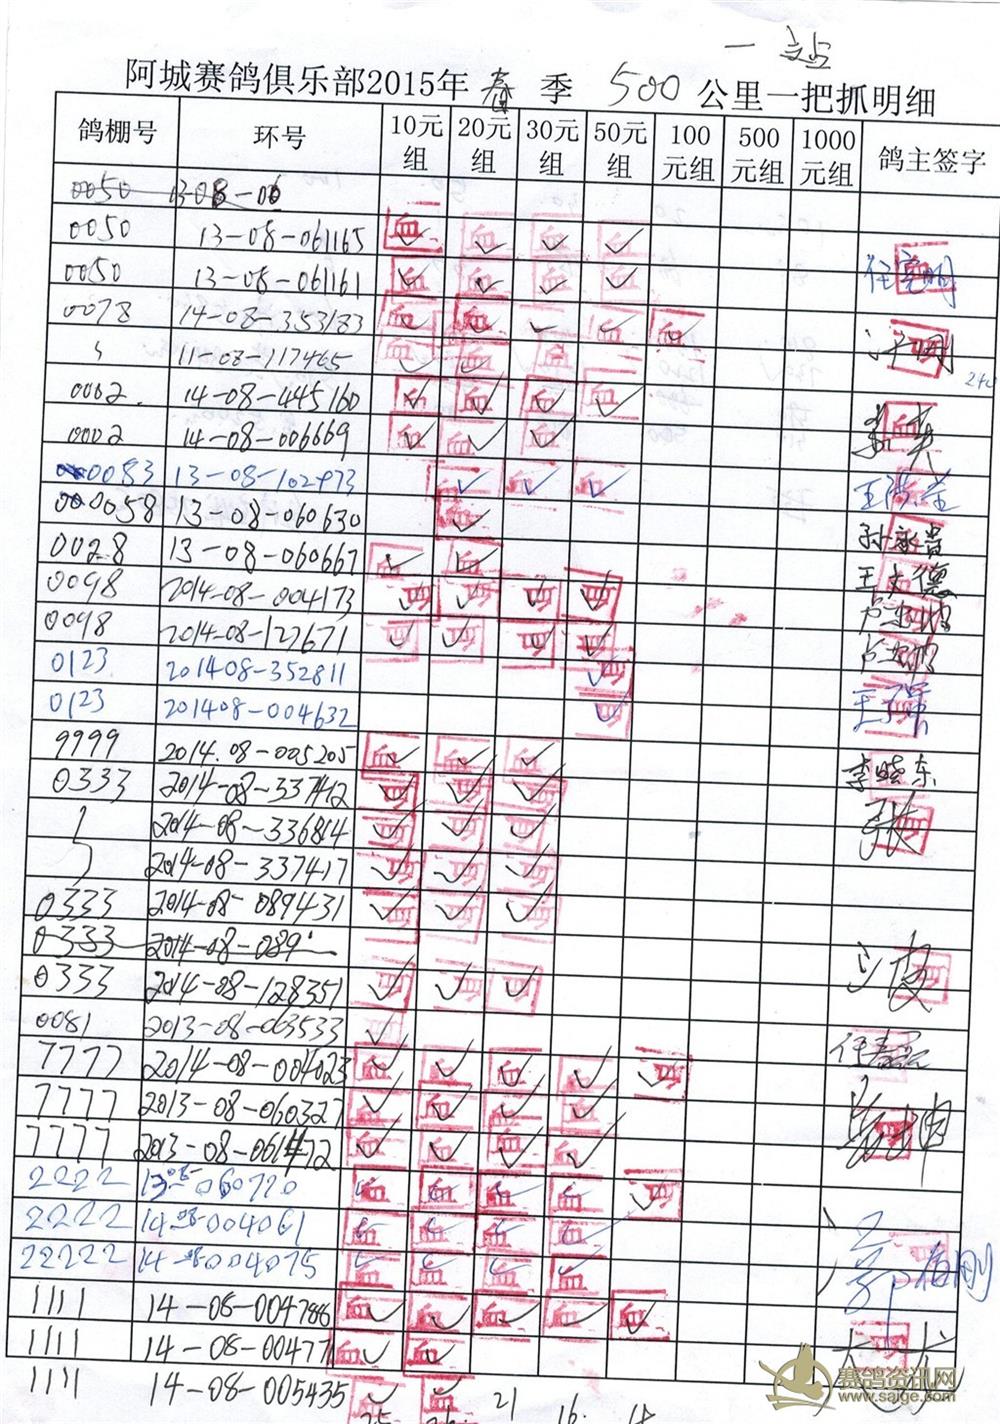 一 站
阿城赛鸽俱乐部2015年 春 季 500 公里一把抓明细
鸽棚号 环号 10元组 20元组 30元组 50元组 100元组 500元组 1000元组 鸽主签字
0050 13-08-06
0050 13-08-061165
0050 13-08-061161
0078 14-08-353183
11-08-117465
240
0002. 14-08-445160
0002 14-08-006669
0083 13-08-102973
000058 13-08-060630 孙永贵
0028 13-08-060667 王大德
0098 2014-08-004173
0098 2014-08-127671
0123 201408-352811
0123 201408-004632
9999 2014.08-005205 李晓东
0333 2014-08-337412 张
2014-08-336814
2014-08-337417
0333 2014-08-089431
0333 2014-08-089
0333 2014-08-128351
0081 2013-08-063533
7777 2014-08-004023
7777 2013-08-060327
7777 2013-08-061472
2222 13-08-060720
2222 14-08-004061
22222 14-08-004075
1111 14-08-004786
1111 14-08-00477
1111 14-08-005435
25 26 21 16 18
赛鸽资讯网
www.saige.com